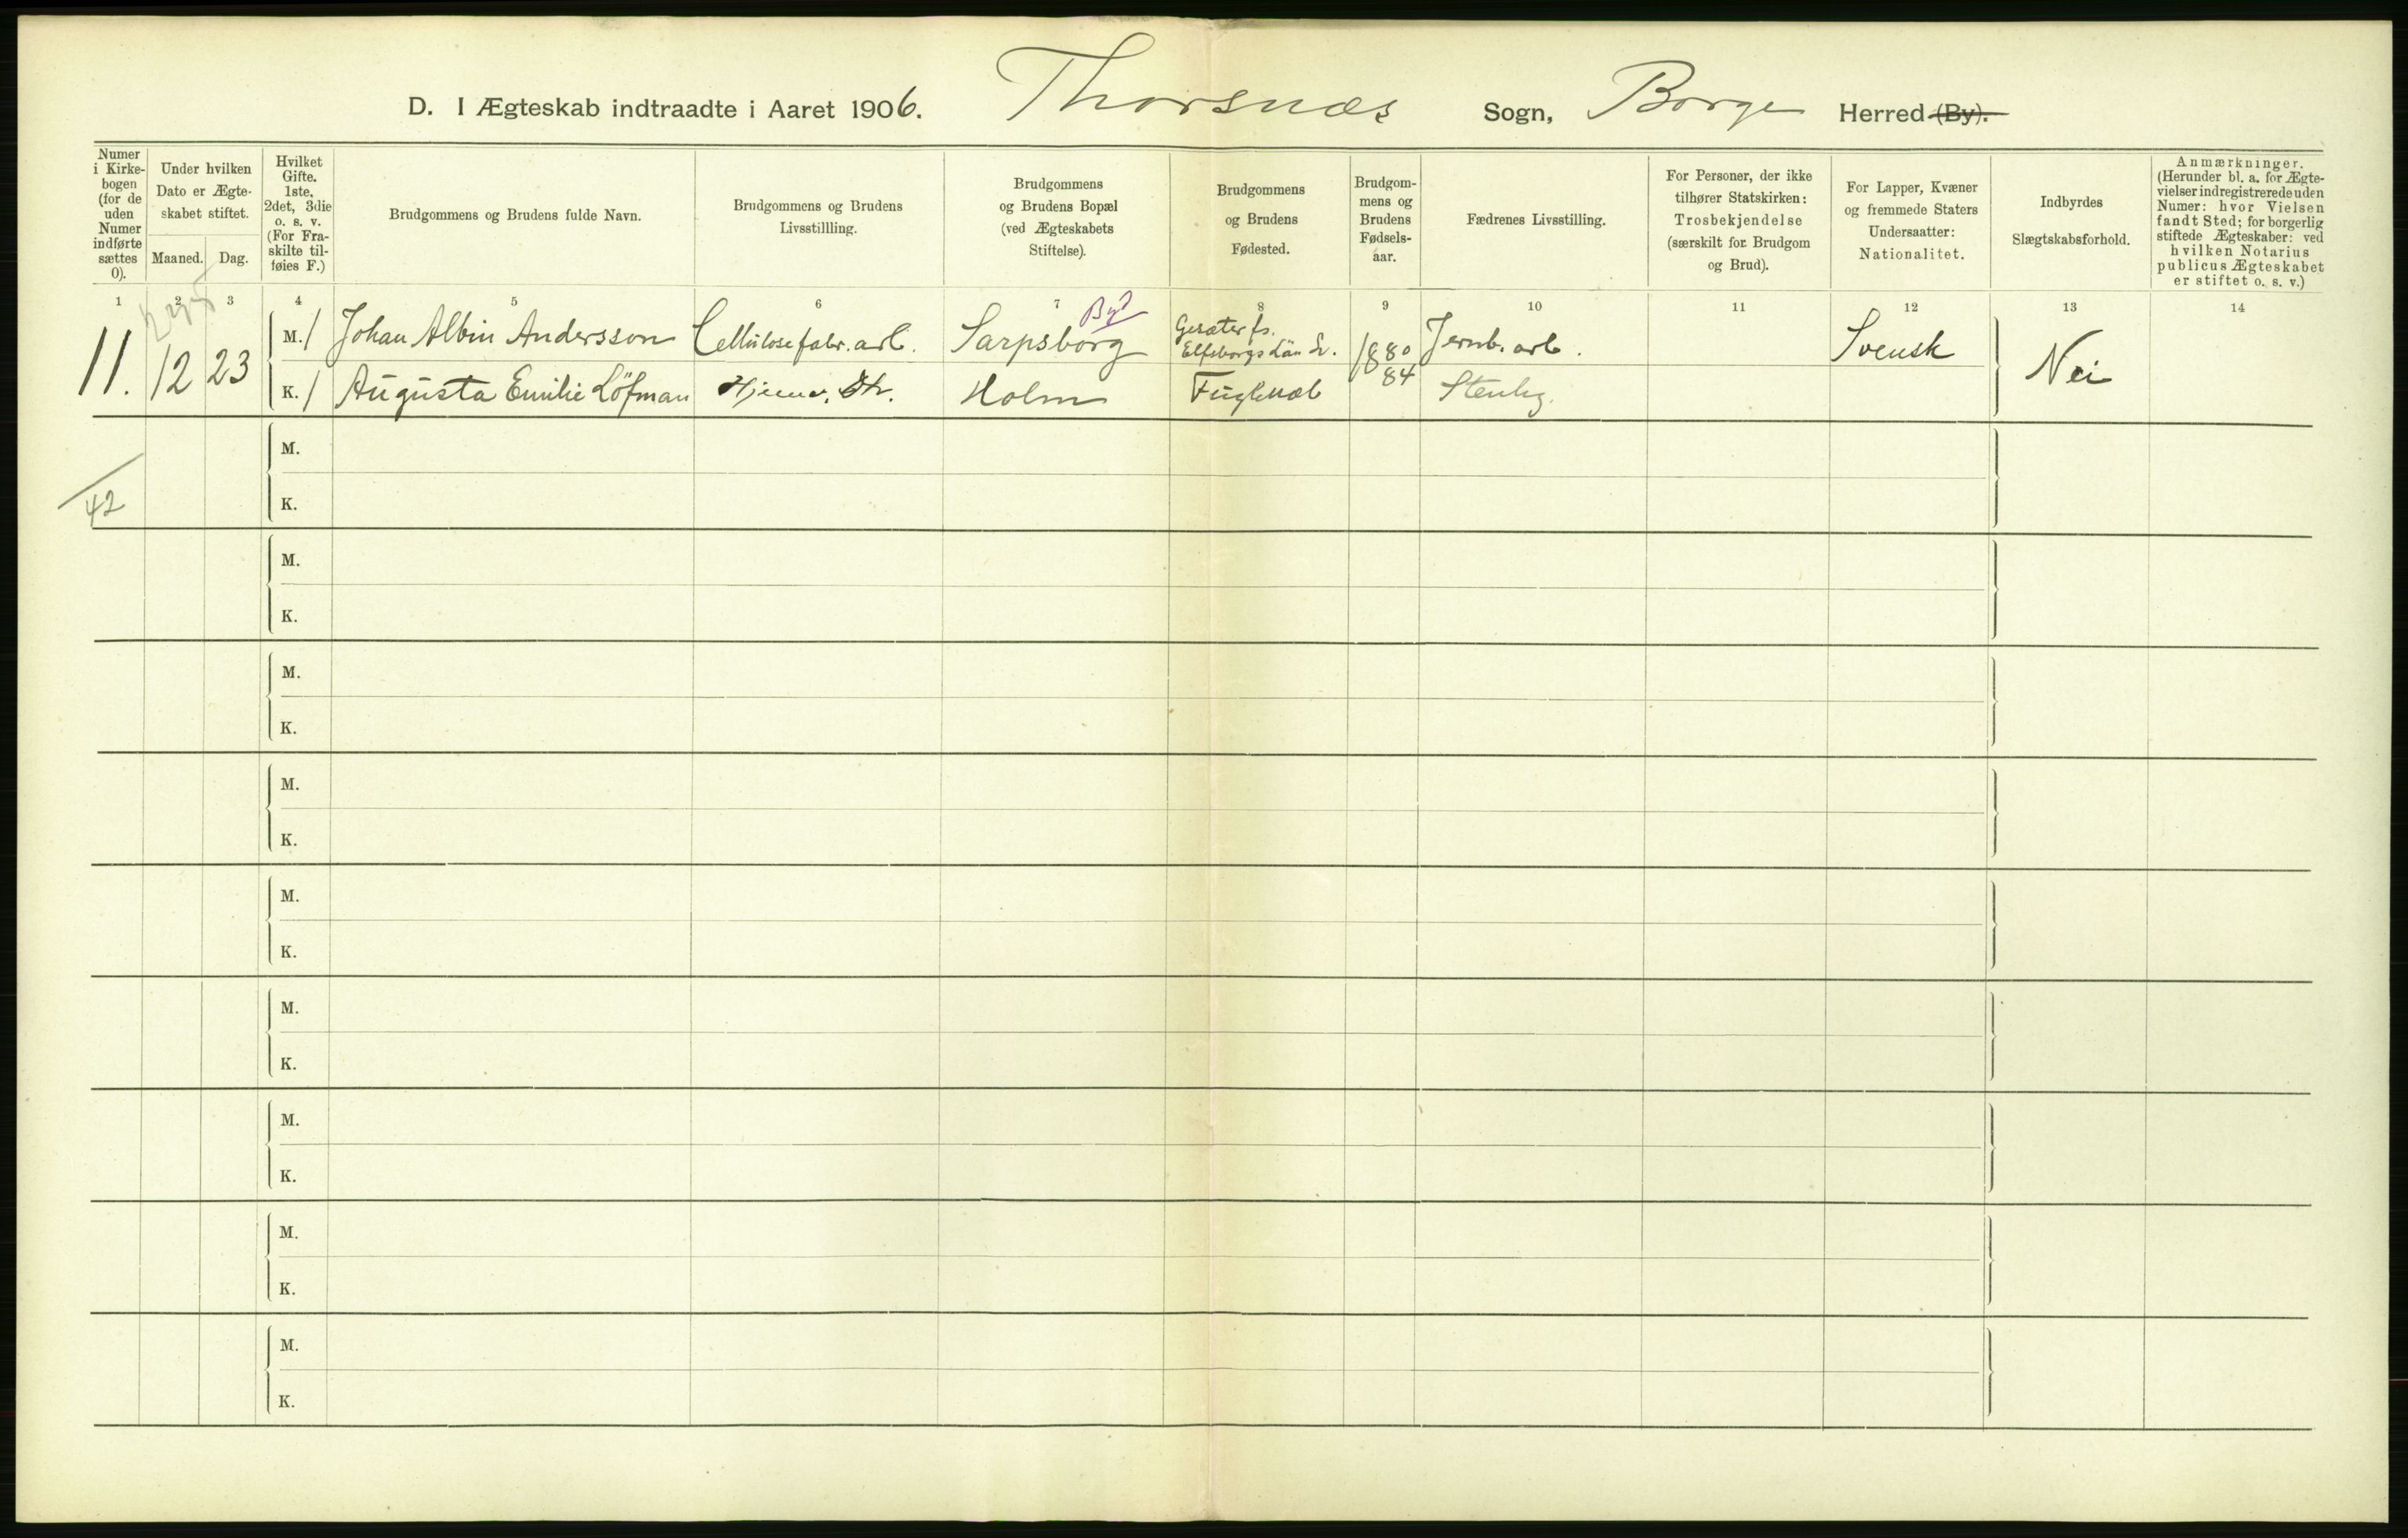 D. I Ægteskab indtraadte i Aaret 1906. Thorsnæs Sogn, Borge Herred (By).
Numer i Kirkebogen (for de uden Numer indførte sættes 0).
Under hvilken Dato er Ægteskabet stiftet.
Maaned. Dag.
Hvilket Gifte. 1ste, 2det, 3die o. s. v. (For Fraskilte tilføies F.)
Brudgommens og Brudens fulde Navn.
Brudgommens og Brudens Livsstillling.
Brudgommens og Brudens Bopæl (ved Ægteskabets Stiftelse).
Brudgommens og Brudens Fødested.
Brudgommens og Brudens Fødselsaar.
Fædrenes Livsstilling.
For Personer, der ikke tilhører Statskirken: Trosbekjendelse (særskilt for Brudgom og Brud).
For Lapper, Kvæner og fremmede Staters Undersaatter: Nationalitet.
Indbyrdes Slægtskabsforhold.
Anmærkninger. (Herunder bl. a. for Ægtevielser indregistrerede uden Numer: hvor Vielsen fandt Sted; for borgerlig stiftede Ægteskaber: ved hvilken Notarius publicus Ægteskabet er stiftet o. s. v.)
1 2 3 4 5 6 7 8 9 10 11 12 13 14
11. 12 23
M. 1 Johan Albin Andersson Cellulosefabr. arb. Sarpsborg By? Elfsborgs Län S. 1880 Jernb. arb. Svensk
K. 1 Augusta Emilie Löfman Holm 84
Nei
M.
42
K.
M.
K.
M.
K.
M.
K.
M.
K.
M.
K.
M.
K.
M.
K.
M.
K.